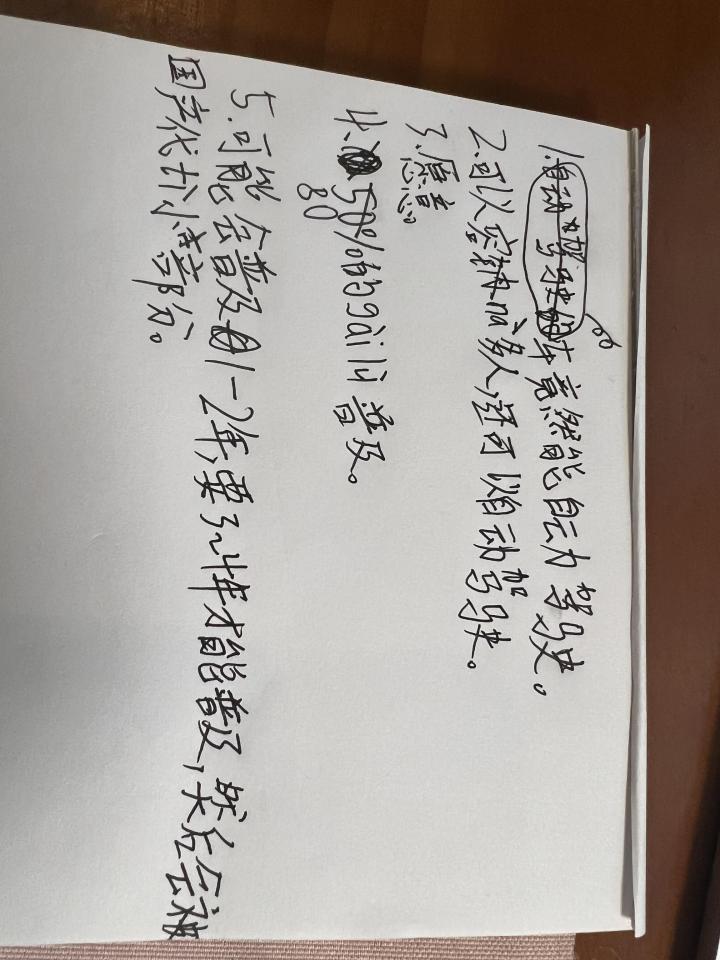 1.自动驾驶的车竟然能自云力驾驶。
2.可以容纳很多人,还可以自动驾驶。
3.愿意。
4、50%的gāi lǜ普及。
80
5.可能会普及1-2年,要3~4年才能普及,然后会被
国产代扑小部分。